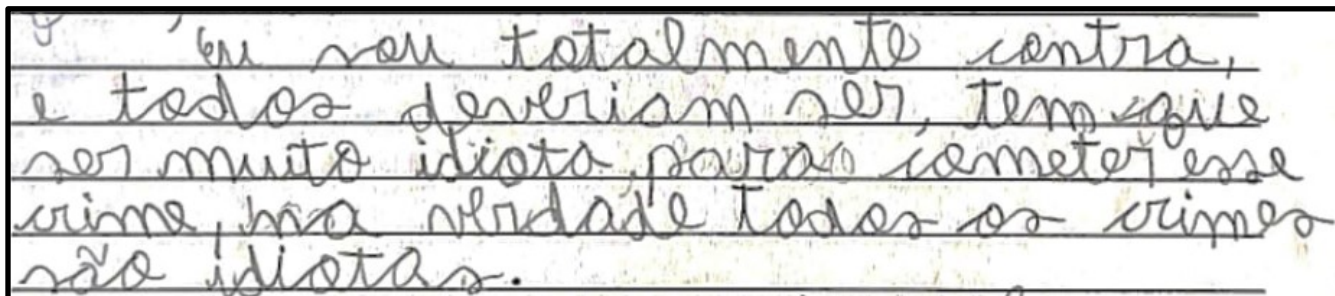 eu sou totalmente contra,
e todos deveriam ser, tem que
ser muito idiota para cometer esse
crime, na verdade todos os crimes
são idiotas.